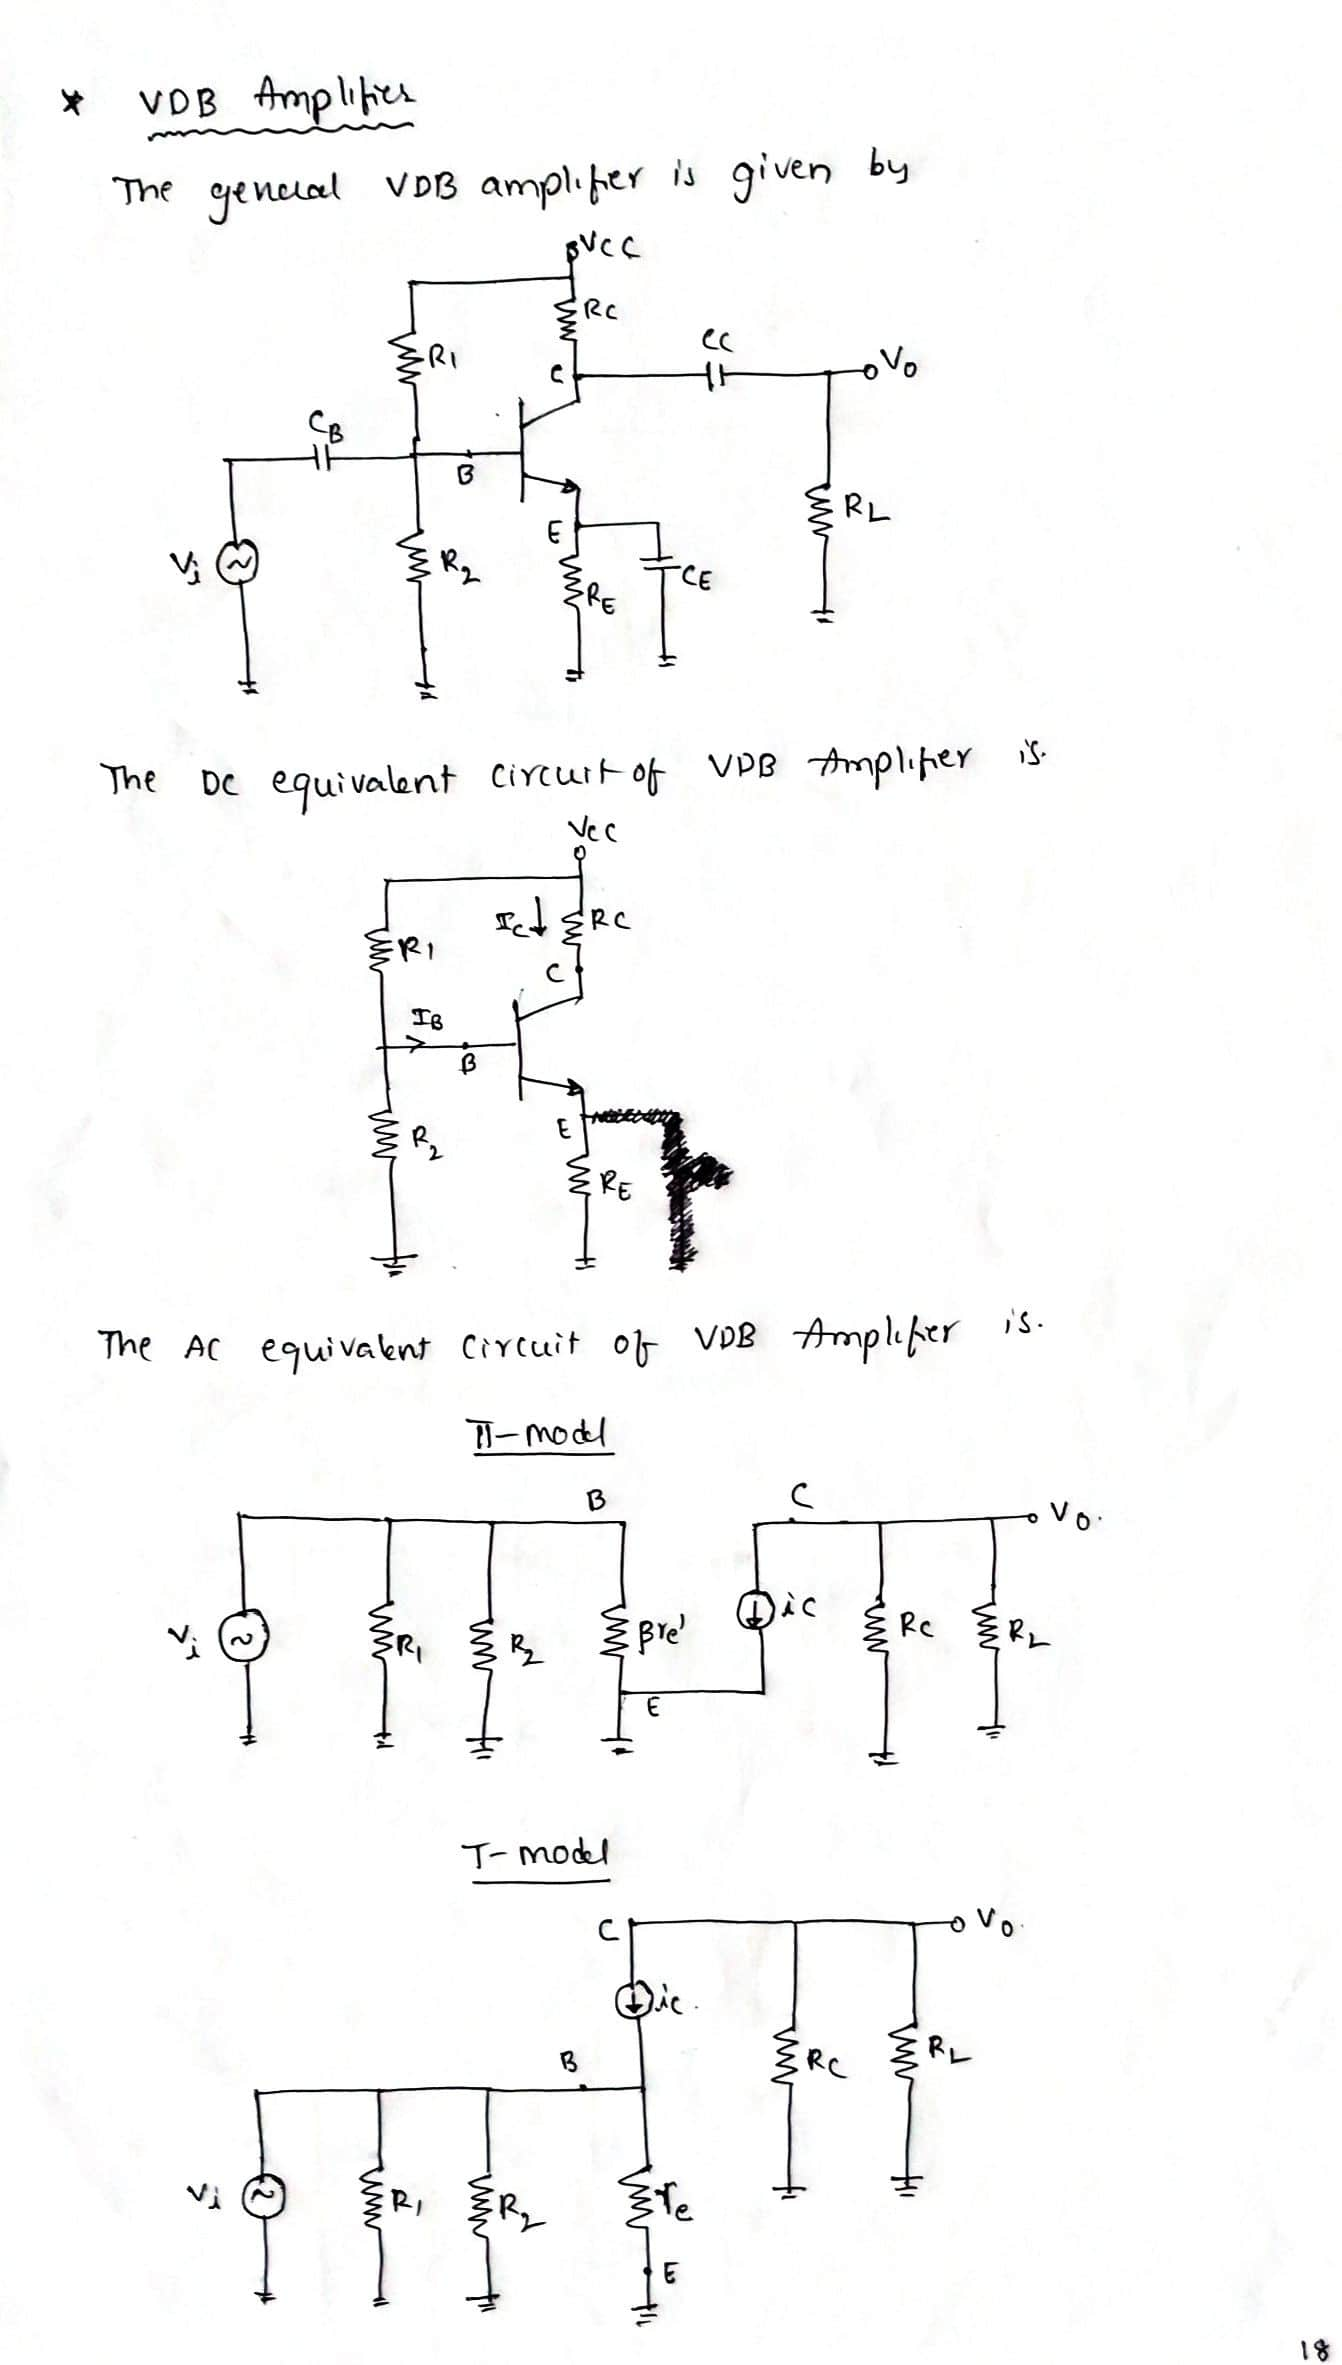 * VDB Amplifier
The general VDB amplifier is given by
VCC
RC
CC
R1
C
Vo
CB
B
RL
E
Vi
R2
RE
CE
The DC equivalent circuit of VDB Amplifier is.
VCC
IC↓
RC
R1
C
IB
B
R2
E
RE
The AC equivalent circuit of VDB Amplifier is.
Π-model
B
C
Vo.
Vi
R1
R2
βre'
ic
RC
RL
E
T-model
C
Vo.
ic.
B
RC
RL
Vi
R1
R2
re
E
18